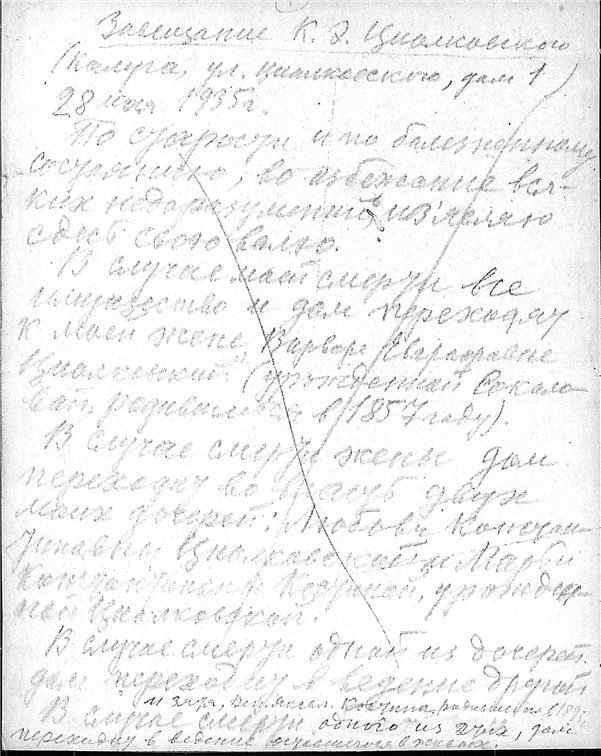 Завещание К. Э. Циолковского
(Калуга, ул. Циолковского, дом 1)
28 мая 1935 г.
По старости и по болезненному
состоянию, во избежание вся-
ких недоразумений, из'являю
здесь свою волю.
В случае моей смерти все
имущество и дом переходят
к моей жене Варваре Евграфовне
Циолковской (урожденной Соколо-
вой, родившейся в 1857 году).
В случае смерти жены дом
переходит во власть двух
моих дочерей: Любови Констан-
тиновны Циолковской и Марьи
Константиновны Костиной, урожден-
ной Циолковской.
В случае смерти одной из дочерей
дом переходит в ведение другой
и зятя, Костина, родившегося в
В случае смерти одного из них, дом
переходит в ведение оставшегося в живых